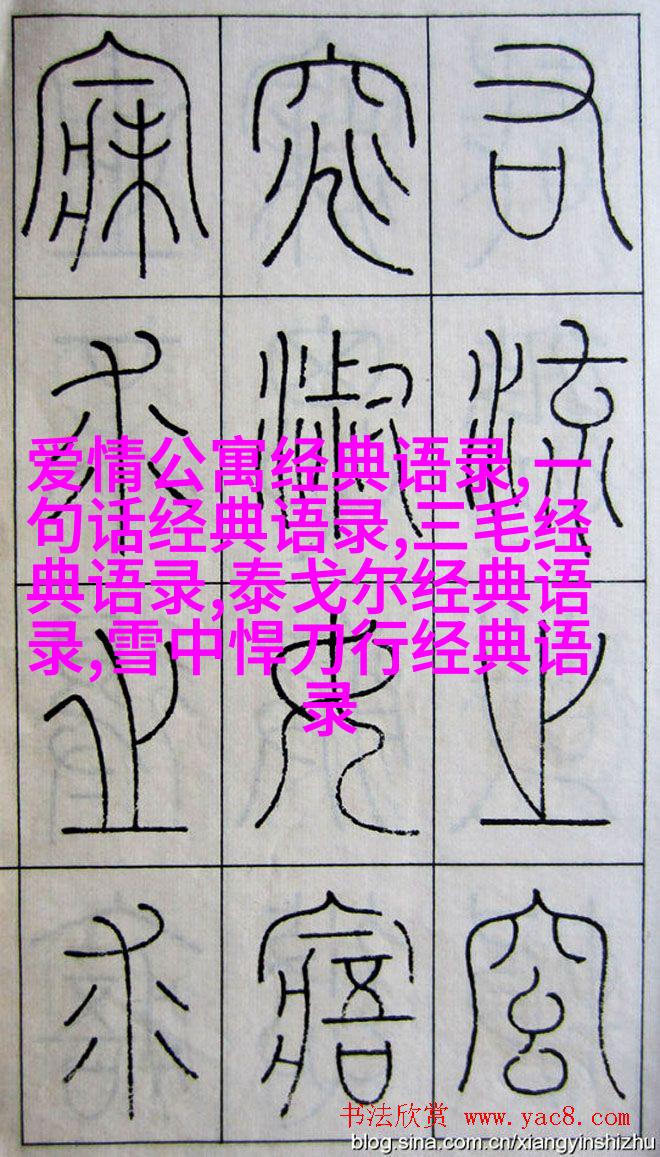 右流之窈
窕淑女寤
寐求之求
爱情公寓经典语录,一
句话经典语录,三毛经
典语录,泰戈尔经典语
录,雪中悍刀行经典语
录
书法欣赏 www.yac8.com
blog.sina.com.cn/xiangyinshizhu